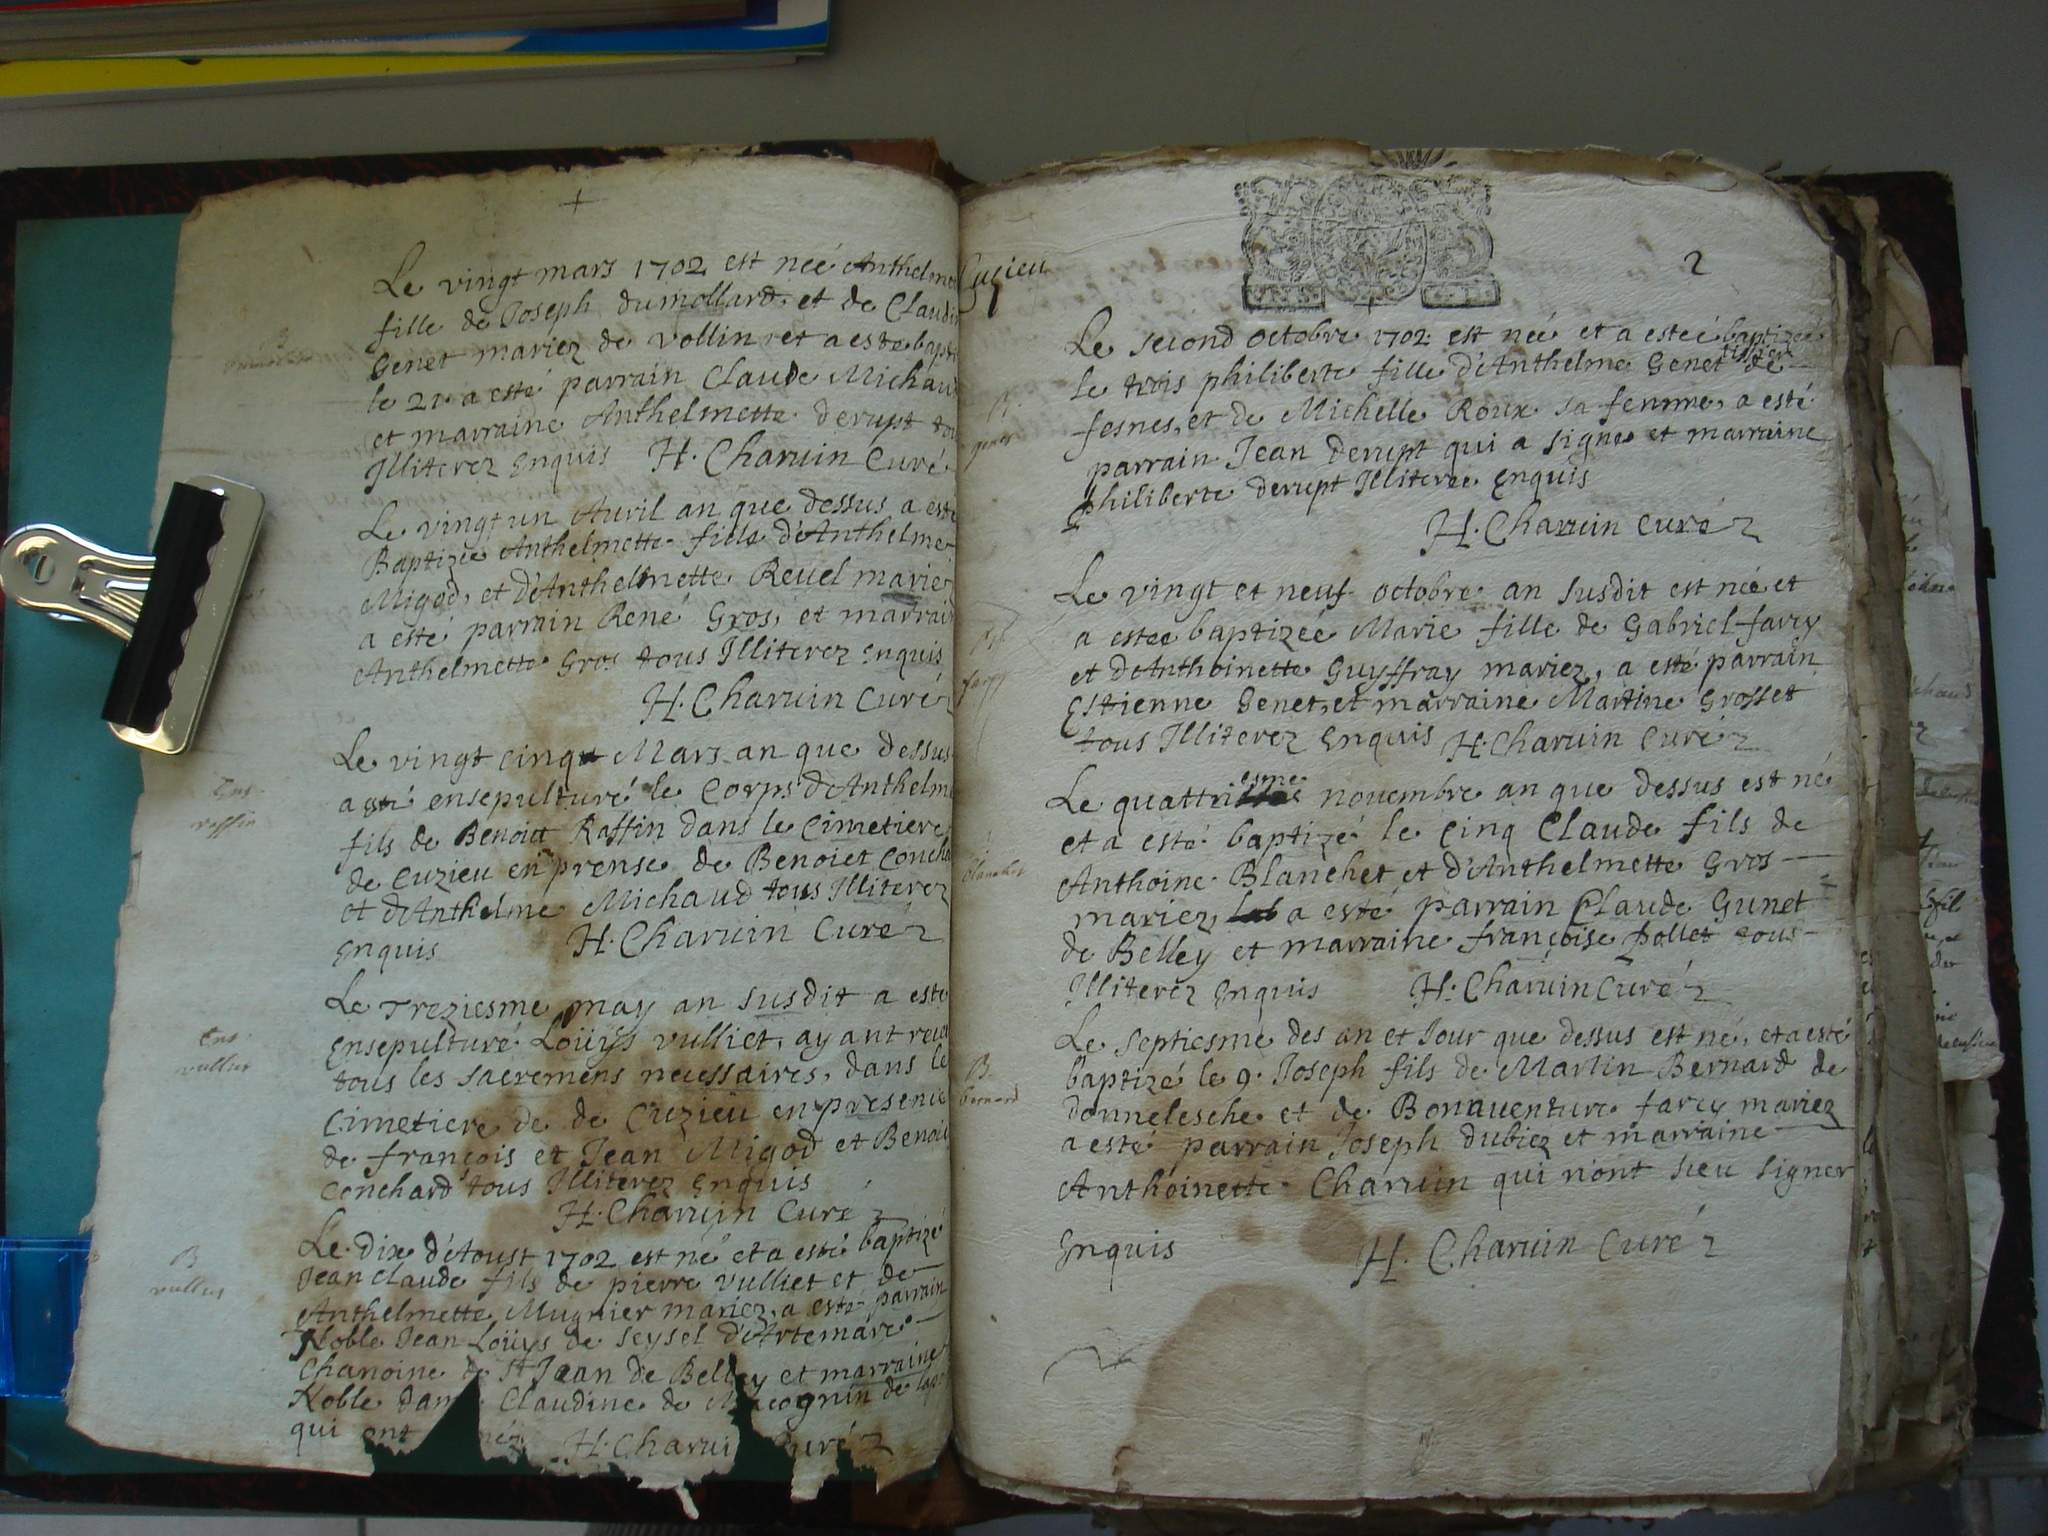 Le vingt mars 1702 est née Anthelme
fille de Joseph dumollard, et de Claudin
Genet mariez de vollin et a este bapt
le 21. a esté parrain Claude Michaud
et marraine Anthelmette derupt tou
Illiterez Enquis H. Charuin Curé
Le vingt un Auril an que dessus a esté
Baptizée Anthelmette fille d'Anthelme
Migod, et d'Anthelmette Reuel mariez
a esté parrain René Gros, et marrain
Anthelmette Gros tous Illiterez Enquis
H. Charuin Curé
Le vingt cinq Mars an que dessus
a esté ensepulturé le Corps d'Anthelme
Ens.
raffin
fils de Benoit Raffin dans le Cimetiere
de Cuzieu en prense de Benoiet Concha
et d'Anthelme Michaud tous Illiterez
Enquis H. Charuin Curé
Le Treziesme may an susdit a esté
Ens.
vulliet
Ensepulturé Loüys vulliet, ayant receu
tous les sacremens necessaires, dans le
Cimetiere de de Cuzieu en presence
de françois et Jean Migod et Benoi
Conchard tous Illiterez Enquis
H. Charuin Curé
Le dix d'Aoust 1702 est né et a esté baptizé
B
vulliet
Jean claude fils de pierre vulliet et de
Anthelmette Mugnier mariez, a esté parrain
Noble Jean Loüys de Seysel d'Artemare
Chanoine de St Jean de Belley et marraine
Noble dam Claudine de Macognin de
qui ont H. Charui Curé
Cuzieu
2
Le second octobre 1702 est née et a esteé baptizée
tissier
le trois philiberte fille d'Anthelme Genet de
B.
genet
fesnes, et de Michelle Roux sa femme, a esté
parrain Jean derupt qui a signe et marraine
philiberte derupt Illiteree Enquis
H. Charuin Curé
Le vingt et neuf octobre an susdit est née et
a estee baptizée Marie fille de Gabriel farcy
farcy
et d'Anthoinette Guyffray mariez, a esté parrain
Estienne Genet, et marraine Martine Grosset
tous Illiterez Enquis H. Charuin Curé
esme
Le quattri nouembre an que dessus est né
et a esté baptizé le cinq Claude fils de
blanchet
Anthoine Blanchet et d'Anthelmette Gros
mariez, a esté parrain Claude Gunet
de Belley et marraine françoise pollet tous
Illiterez Enquis H. Charuin Curé
Le septiesme des an et Jour que dessus est né, et a esté
B.
bernard
baptizé le 9. Joseph fils de Martin Bernard de
donnelesche et de Bonauenture farcy mariez
a esté parrain Joseph dubiez et marraine
Anthoinette Charuin qui n'ont sceu signer
Enquis H. Charuin Curé